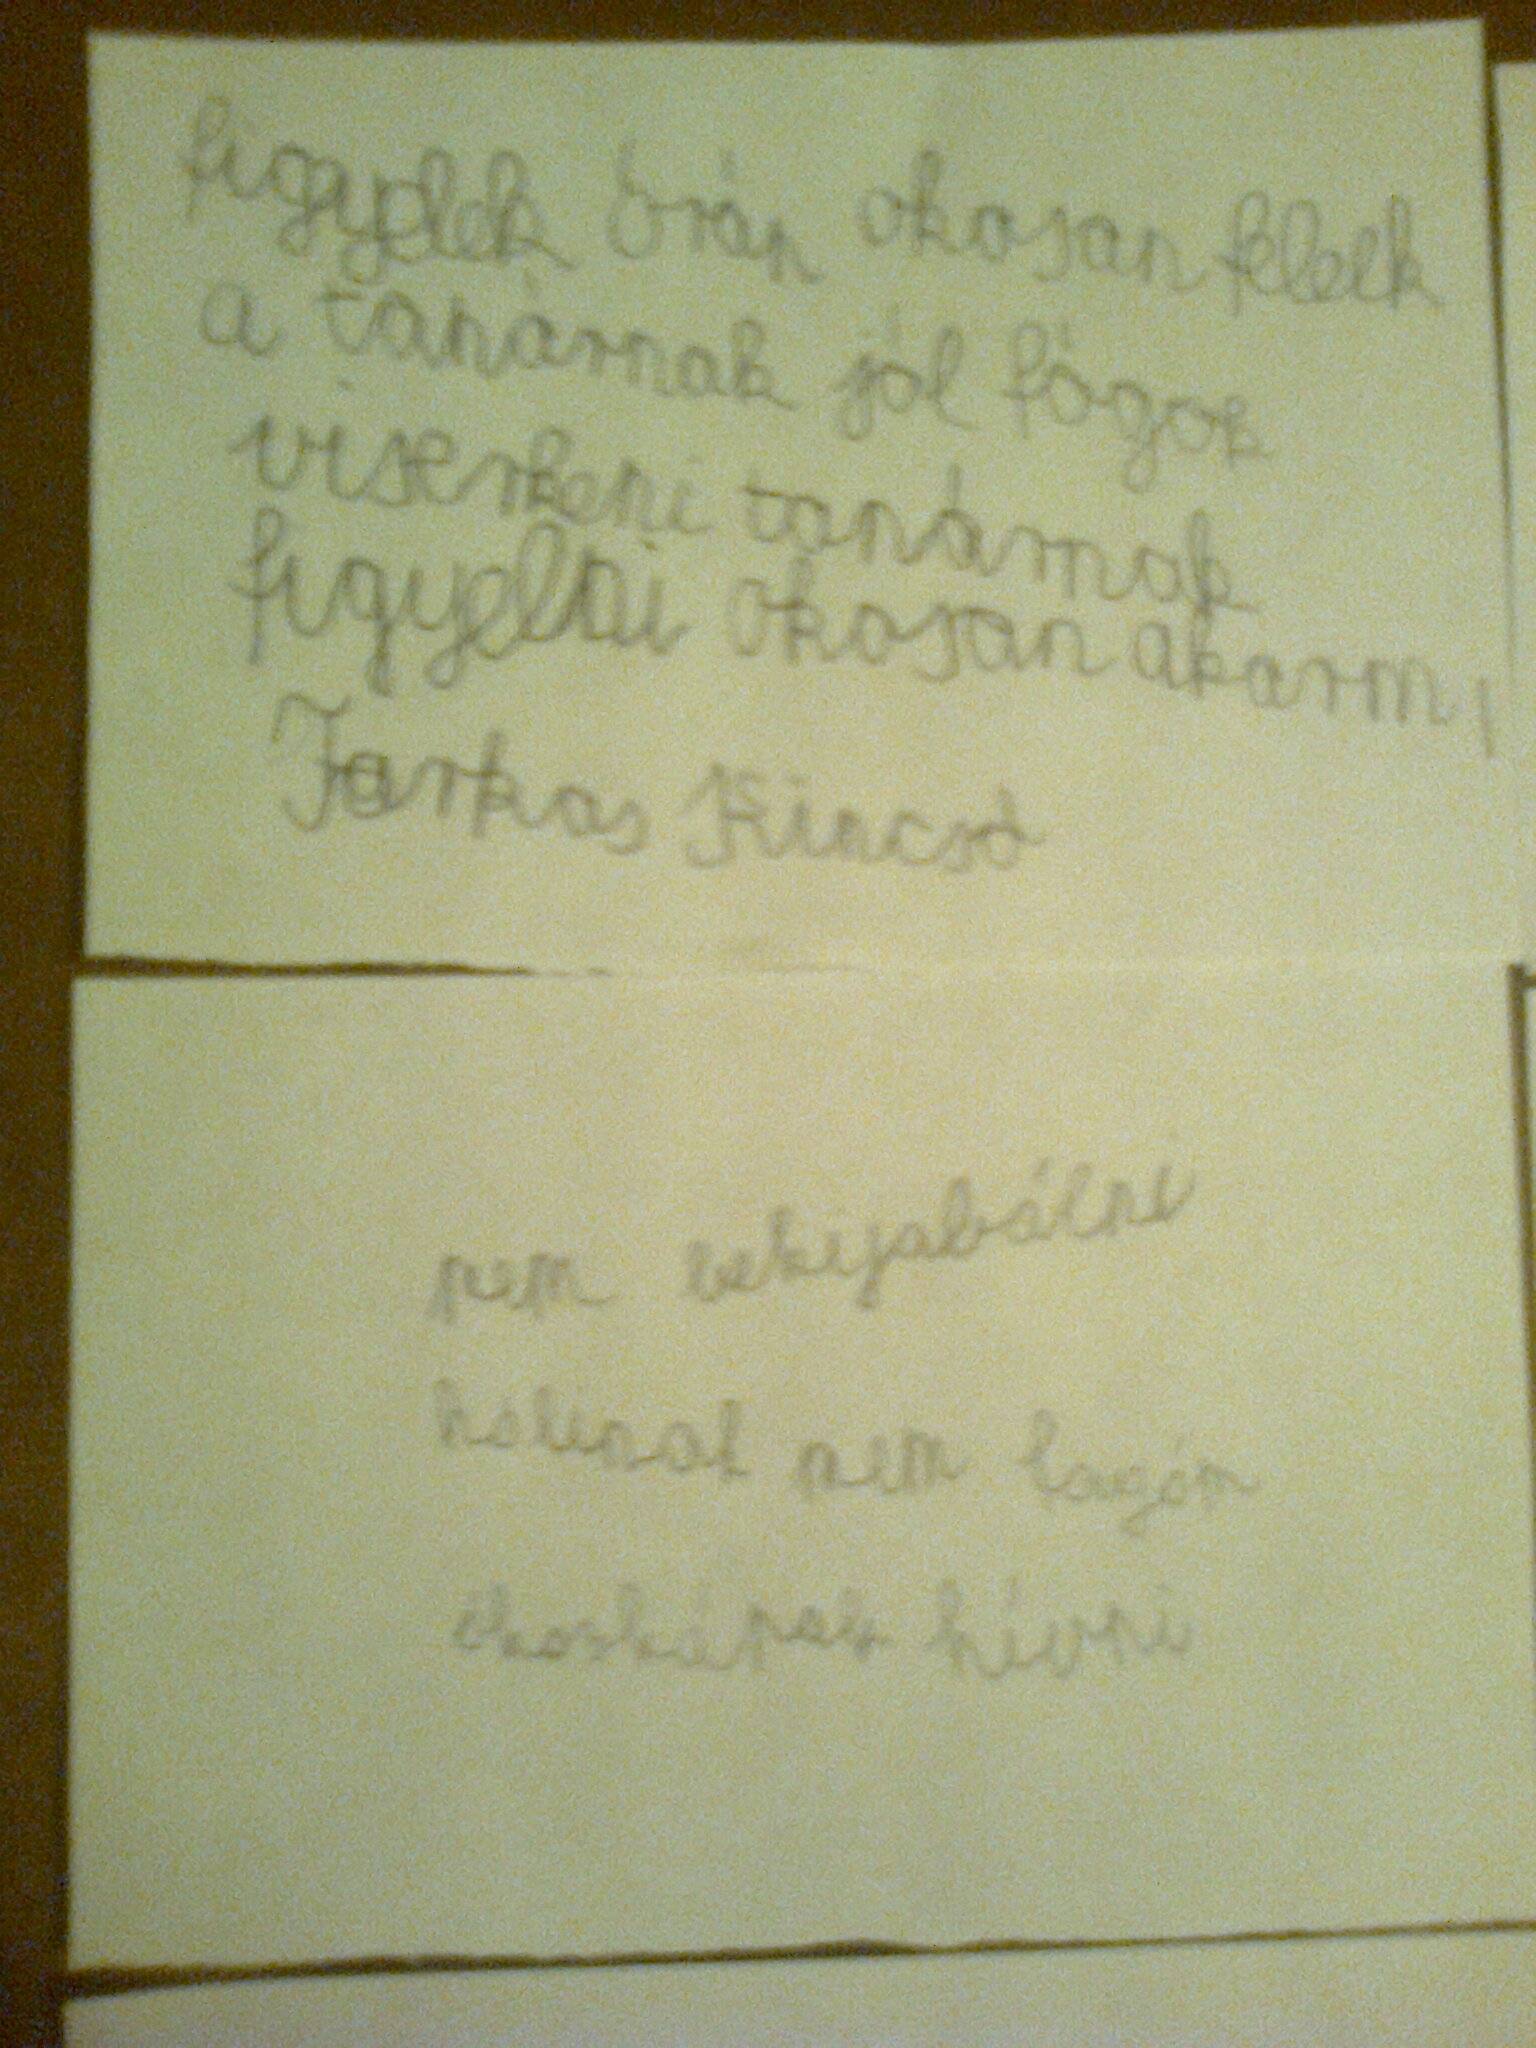 figyelek Órán okosan felelk
a tanárnak jól fógok
viserkeni tanárnak
figyelni okosan akarm
Farkas Kincső
nem bekijabálni
nem
okoskának hívni